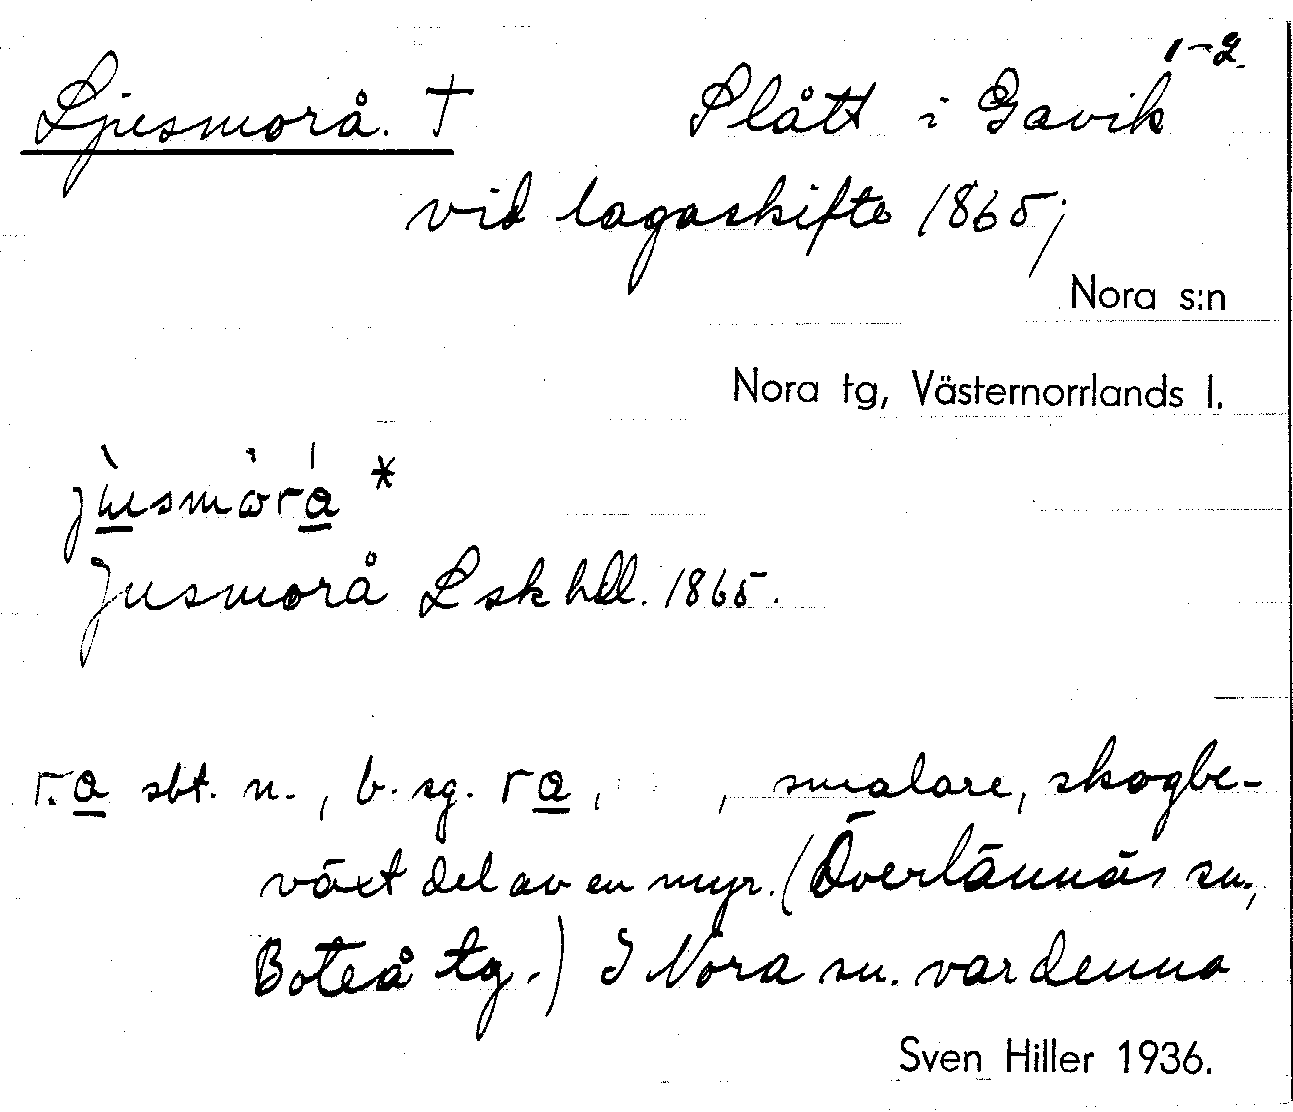 1-2
Ljusmorå. † Slått i Gavik
vid lagaskifte 1865;
Nora s:n
Nora tg, Västernorrlands l.
jùsmòrá *
Jusmorå Lskhdl. 1865.
ra sbt. n., b. sg. ra, , smalare, skogbe-
växt del av en myr. (Överlännäs sn.,
Boteå tg.) I Nora sn. var denna
Sven Hiller 1936.